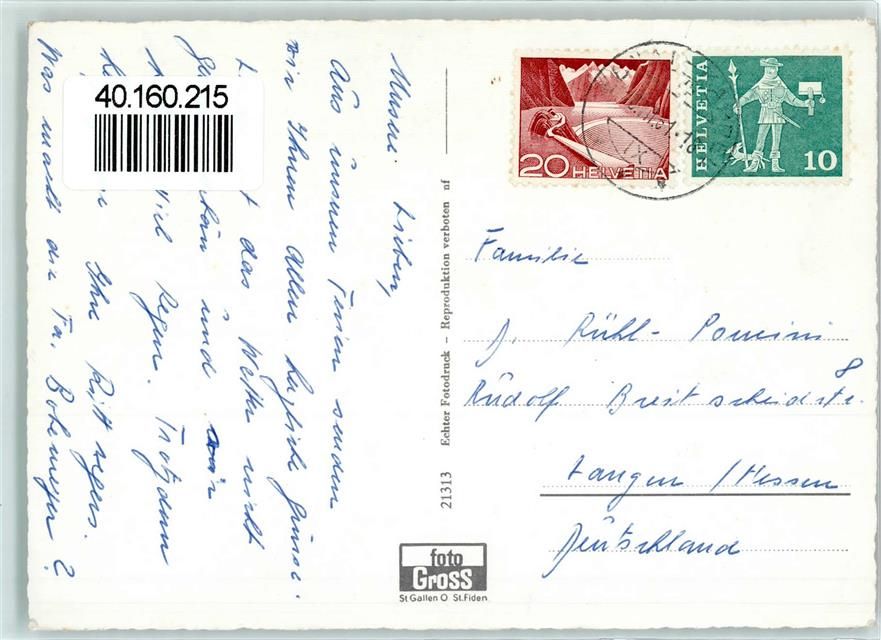 40.160.215
Meine Lieben,
Aus unseren Ferien senden
wir Ihnen Allen herzliche Grüsse.
das Wetter nicht
und wir
viel Regen. Trotzdem
Ihre Ritt
Was macht die Fa. Bohemeyer?
Echter Fotodruck - Reproduktion verboten nf
21313
foto
GROSS
St Gallen O St. Fiden
20 HELVETIA
HELVETIA 10
Familie
A. Rühl- Pomini
Rudolf Breitscheidstr. 8
Langen / Hessen
Deutschland